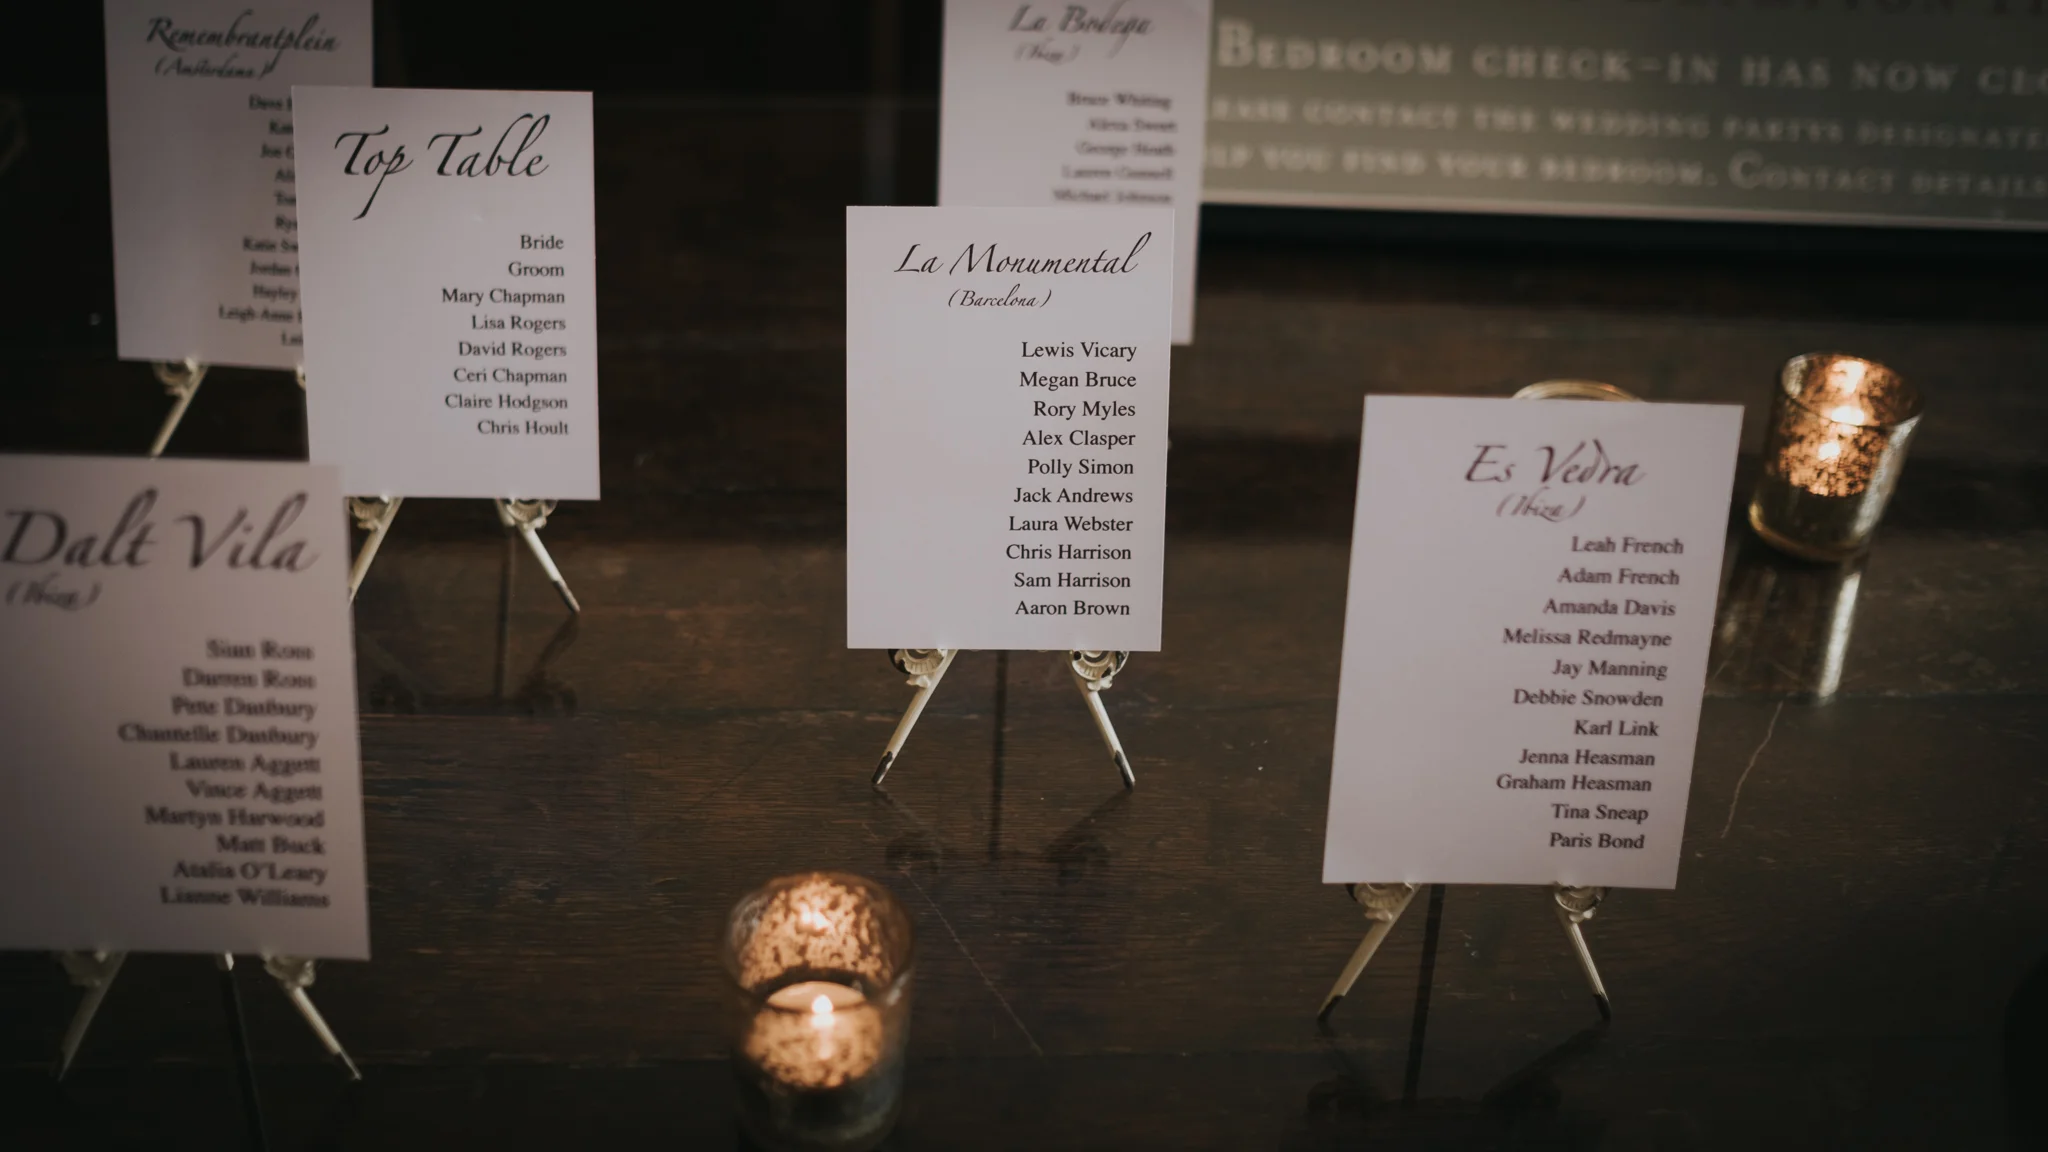 Remembrantplein
(Amsterdam)
Katie
Jordan
Hayley
Leigh-Anne
Top Table
Bride
Groom
Mary Chapman
Lisa Rogers
David Rogers
Ceri Chapman
Claire Hodgson
Chris Hoult
Dalt Vila
(Ibiza)
Sian Ross
Darren Ross
Pete Danbury
Chantelle Danbury
Lauren Aggett
Vince Aggett
Martyn Harwood
Matt Buck
Atalia O'Leary
Lianne Williams
La Bodega
(Ibiza)
Bruce Whiting
Alexa Sweet
George Heath
Lauren Connell
Michael Johnson
La Monumental
(Barcelona)
Lewis Vicary
Megan Bruce
Rory Myles
Alex Clasper
Polly Simon
Jack Andrews
Laura Webster
Chris Harrison
Sam Harrison
Aaron Brown
Es Vedra
(Ibiza)
Leah French
Adam French
Amanda Davis
Melissa Redmayne
Jay Manning
Debbie Snowden
Karl Link
Jenna Heasman
Graham Heasman
Tina Sneap
Paris Bond
Bedroom check-in has now
contact the wedding partys
you find your bedroom. Contact details